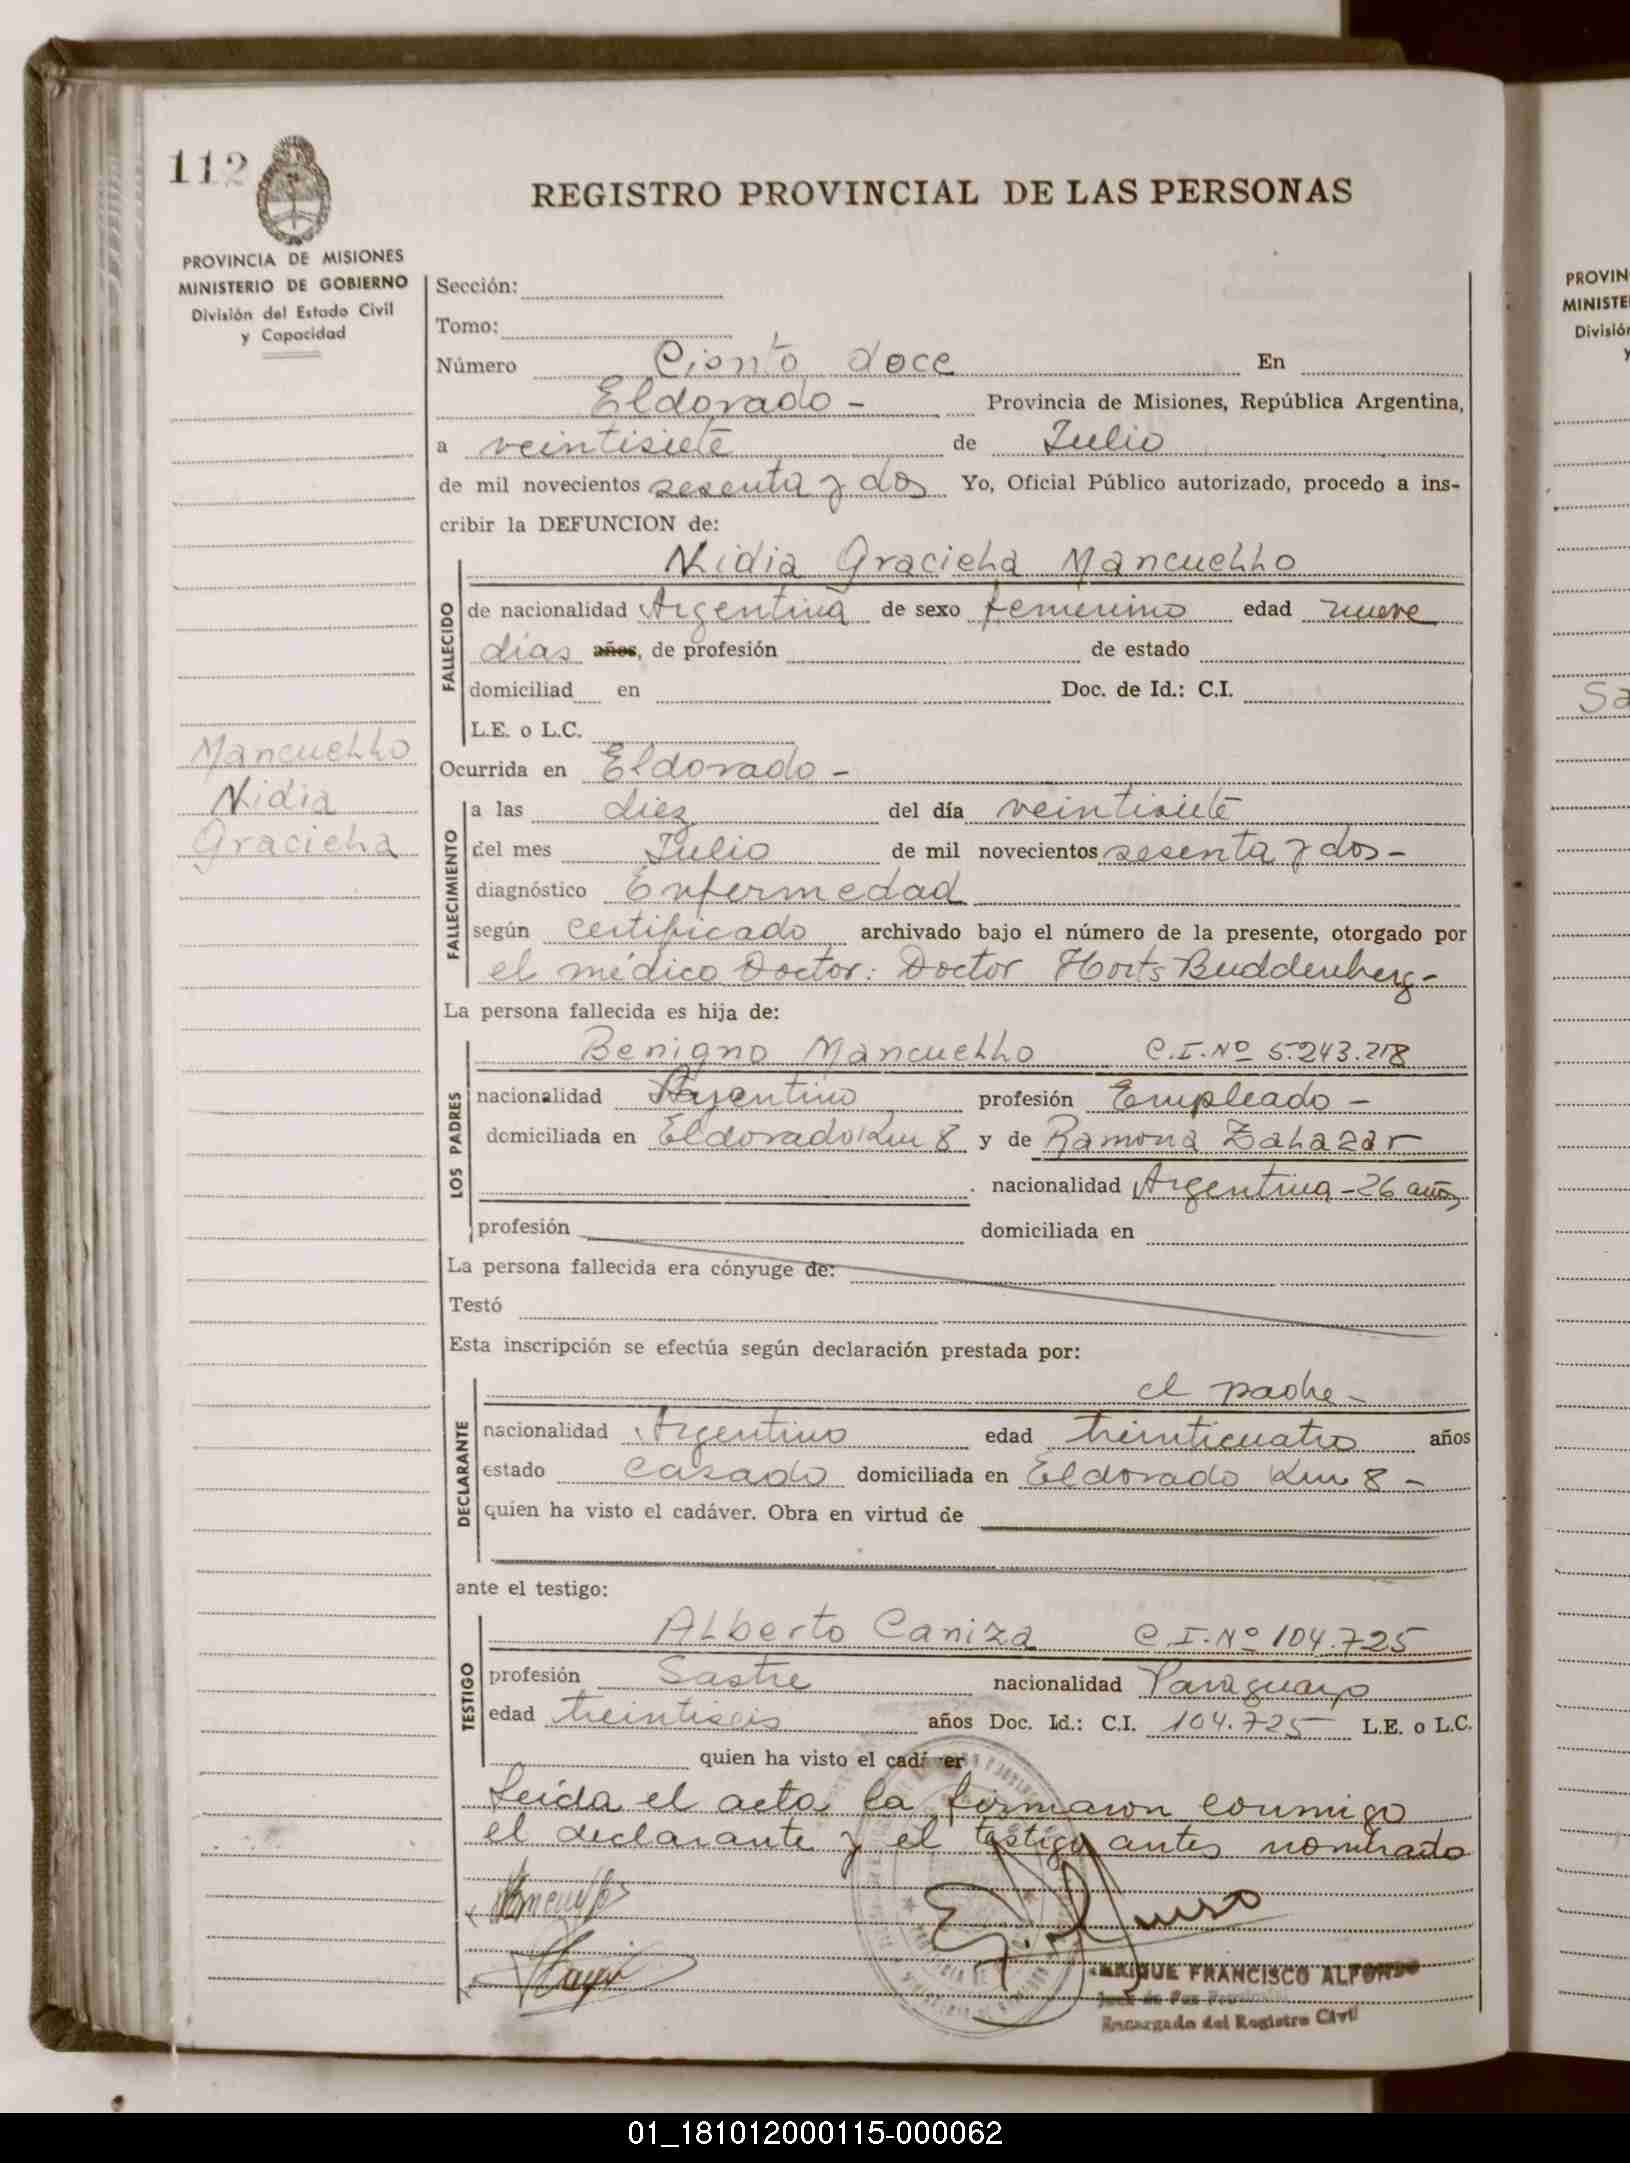 112
REGISTRO PROVINCIAL DE LAS PERSONAS
PROVINCIA DE MISIONES
MINISTERIO DE GOBIERNO
División del Estado Civil
y Capacidad
Sección:
Tomo:
Número Ciento doce En
Eldorado - Provincia de Misiones, República Argentina,
a veintisiete de Julio
de mil novecientos sesenta y dos Yo, Oficial Público autorizado, procedo a ins-
cribir la DEFUNCION de:
FALLECIDO
Nidia Graciela Mancuello
de nacionalidad Argentina de sexo femenino edad nueve
días años, de profesión de estado
domiciliad en Doc. de Id.: C.I.
L.E. o L.C.
Mancuello
Nidia
Graciela
Ocurrida en Eldorado -
FALLECIMIENTO
a las diez del día veintisiete
del mes Julio de mil novecientos sesenta y dos -
diagnóstico Enfermedad
según certificado archivado bajo el número de la presente, otorgado por
el médico Doctor: Doctor Horts Buddenberg -
La persona fallecida es hija de:
LOS PADRES
Benigno Mancuello C.I. Nº 5.243.218
nacionalidad Argentino profesión Empleado -
domiciliada en Eldorado Km 8 y de Ramona Zalazar
nacionalidad Argentina - 26 años
profesión domiciliada en
La persona fallecida era cónyuge de:
Testó
Esta inscripción se efectúa según declaración prestada por:
DECLARANTE
el padre -
nacionalidad Argentino edad treinticuatro años
estado casado domiciliada en Eldorado Km 8 -
quien ha visto el cadáver. Obra en virtud de
ante el testigo:
TESTIGO
Alberto Caniza C.I. Nº 104.725
profesión Sastre nacionalidad Paraguayo
edad treintiseis años Doc. Id.: C.I. 104.725 L.E. o L.C.
quien ha visto el cadáver
Leída el acta la firmaron conmigo
el declarante y el testigo antes nombrado
ENRIQUE FRANCISCO ALFONSO
Juez de Paz Provincial
Encargado del Registro Civil
PROVIN
MINISTE
División
y
Sa
01_181012000115-000062